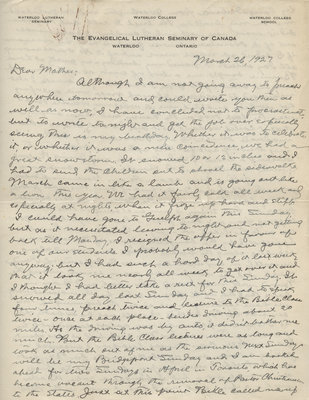 WATERLOO LUTHERAN SEMINARY
WATERLOO COLLEGE
WATERLOO COLLEGE SCHOOL
THE EVANGELICAL LUTHERAN SEMINARY OF CANADA
WATERLOO ONTARIO
March 26, 1927
Dear Mother;
Although I am not going away to preach
anywhere tomorrow and could write you then as
well as now, I have concluded not to procrastinate
but to write tonight and get the job over especially
seeing this is my birthday. Whether it was to celebrate
it, or whether it was a mere coincidence, we had a
great snowstorm. It snowed 10 or 12 inches and I
had to send the children out to shovel the sidewalks
March came in like a lamb and is going out like
a lion this year. We had it fairly cold all week and
especially at nights when it froze up hard and stiff.
I could have gone to Guelph again this Sunday
but as it necessitated leaving tonight and not getting
back till Monday, I resigned the offer in favour of
one of our students. I probably would have gone
anyway but I had such a hard day of it last week
that it took me nearly all week to get over it and
I thought I had better take a rest for this Sunday. It
snowed all day last Sunday and I had to speak
four times, preach twice and lecture to the Bible Class
twice - once at each place - besides driving about 20
miles. As the driving was by auto it didn't bother me
much. But the Bible Class lectures were as long and
took as much out of me as the sermons. Next Sunday
will be my Bridgeport Sunday and I am booked
ahead for two Sundays in April in Toronto which has
become vacant through the removal of Pastor
to the States. Just at this point Bible called